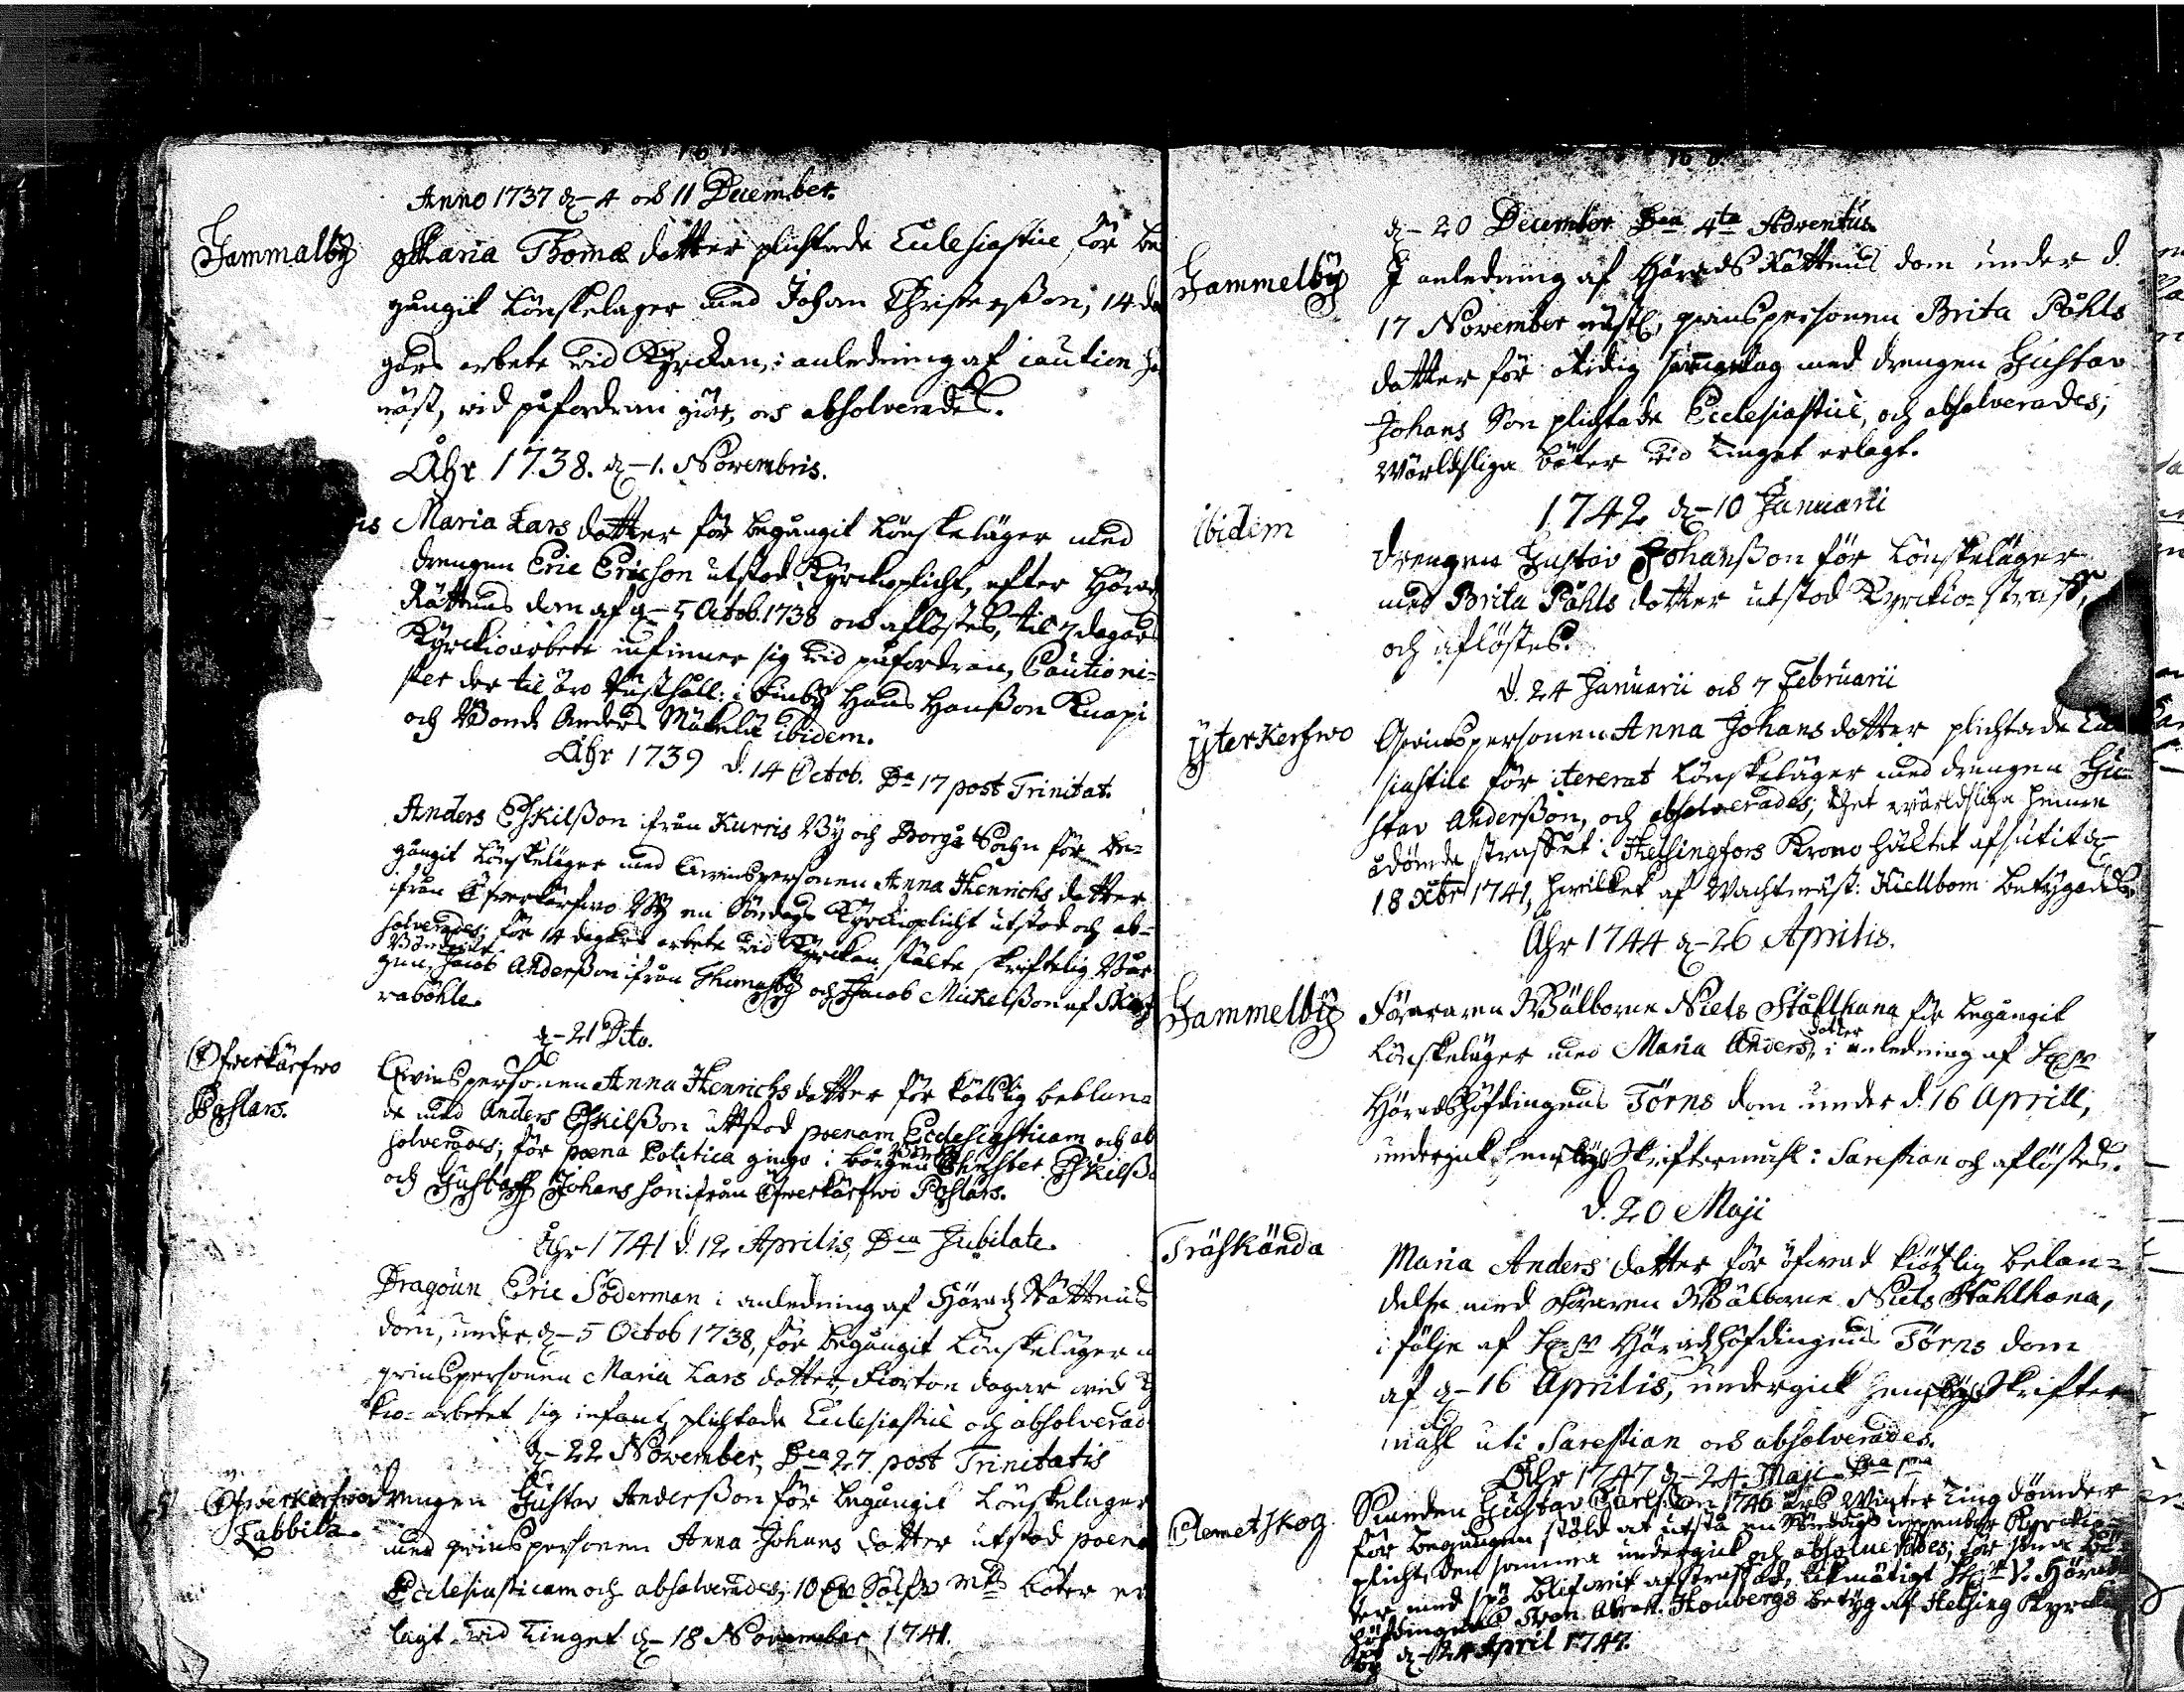 Anno 1737 d. 4 och 11 December.
Gammalby Maria Thomæ dotter plichtade Ecclesiastice för be
gångit Lönskelager med Johan Christersson; 14 da
gars arbete wid Kyrckan, i anledning af caution
näst, wid påfordran giör, och absolverades.
Åhr 1738. d. 1. Novembris.
Maria Lars dotter för begångit Lönskeläger med
drengen Eric Ericson utstod Kyrckioplicht, efter Härads
Rättens dom af d. 5 Octob. 1738 och aflöstes, til 7 dagars
Kyrckioarbete infinner sig wid påfordran, Cautioni=
ster der til äro Hans Hansson Knapi
och Bonde Anders Mäkelä ibidem.
Åhr 1739 d. 14 Octob. Da 17 post Trinitat.
Anders Eskilsson ifrån Kurris By och Borgå Sochn för be=
gångit Lönskeläger med Qwinspersonen Anna Henrichs dotter
ifrån Öfwerkärfwo By en Söndags Kyrckioplicht utstod och ab=
solverades; för 14 dagars arbete wid Kyrckan stälte skriftelig Bår
gen, Bonden Jacob Andersson ifrån och Jacob Mickelsson af
raböhle.
d. 21 Dito.
Öfwerkärfwo Qwinspersonen Anna Henrichs dotter för kötslig beblan=
Påslars. de med Anders Eskilsson utstod poenam Ecclesiasticam och ab
solverades; för poena Politica gingo i borgen Christer Eskilsso
och Gustaff Johans son ifrån Öfwerkärfwo Påslars.
Åhr 1741 d. 12 Aprilis, Dca Jubilate.
Dragoun Eric Söderman i anledning af Häradz Rättens
dom, under d. 5 Octob 1738, för begångit Lönskeläger
qvinspersonen Maria Lars dotter, Fiorton dagar wid
kio=arbetet sig infant, plichtade Ecclesiastice och absolverad
d. 22 November, Dca 27 post Trinitatis
Öfwerkerfwo drengen Gustav Andersson för begångit Lönskelager
Labbila. med qvinspersonen Anna Johans dotter utstod poena
Ecclesiasticam och absolverades; 10 Sölf: mt böter er
lagt wid Tinget d. 18 November 1741.
d. 20 December Dca 4ta Adventus
Gammelby I anledning af Härads Rättens dom under d.
17 November näst, qvinspersonen Brita Påhls
dotter för otidig sängelag med drengen Gustav
Johans Son plichtade Ecclesiastice, och absolverades;
Wärldsliga böter wid Tinget erlagt.
1742 d. 10 Januarii
ibidem drengen Gustav Johansson för Lönskeläger
med Brita Påhls dotter utstod Kyrckio=straff,
och aflöstes.
d. 24 Januarii och 7 Februarii
Ytterkerfwo Qwinspersonen Anna Johans dotter plichtade Ecc
siastice för itererat Lönskeläger med drengen Gu=
stav Andersson, och absolverades; thet wärldsliga henne
ådömde straffet i Helsingfors Krono häktet afsutit d
18 Xbr 1741, hwilket af Wachtmäst: Kiellbom betygades
Åhr 1744 d. 26 Aprilis.
Gammelby Föraren Wälborne Niels Stålhana för begångit
Lönskeläger med Maria Anders dotter, i anledning af
Häradshöfdingens Törns dom under d. 16 Aprill,
undergick hemligt Skriftermahl: Sacrestian och aflöstes.
d. 20 Maji
Träskända Maria Anders dotter för öfwad kiötzlig belan=
delse med Föraren Wälborne Niels Stahlhana,
i följe af Häradzhöfdingens Törns dom
af d. 16 Aprilis, undergick hemligt Skrifter
mahl uti Sacrestian och absolverades.
Åhr 1747 d. 24 Maji
Clemetskog. Gustav Carlsson 1746 års Winter Ting dömder
för begången stöld at utstå en Söndags uppenbar Kyrckio=
plicht, den samma undergick och absolverades; för sina bö=
ter med spö blifwit afstraffad, likmätigt V. Härads
höfdingens betyg af Helsing Kyrckio
by d. 24 April 1747.